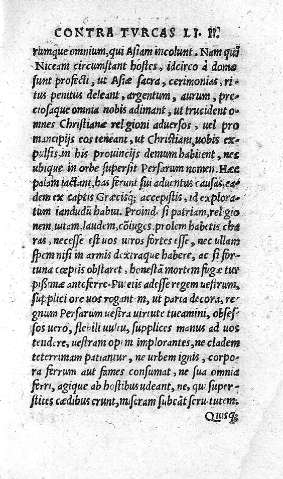 CONTRA TVRCAS LI. II.
rumque omnium, qui Asiam incolunt. Nam qui
Niceam circumstant hostes, idcirco à domo
sunt profecti, ut Asiæ sacra, cerimonias, ri⸗
tus penitus deleant, argentum, aurum, pre⸗
ciosaque omnia nobis adimant, ut trucident o
mnes Christianæ religioni aduersos, uel pro
mancipijs eos teneant, ut Christiani, uobis ex⸗
pulsis in his prouincijs demum habitent, nec
ubique in orbe supersit Persarum nomen. Hæc
palàm iactant, has ferunt sui aduentus causas, ea⸗
dem ex captis Græcisq; accepistis, id explora⸗
tum iandudũ habui. Proinde si patriam, religio
nem, uitam, laudem, cõiuges, prolem habetis cha
ras, necesse est uos uiros fortes esse, nec ullam
spem nisi in armis dextraque habere, ac si for⸗
tuna cœptis obstaret, honestã mortem fugæ tur
pissimæ anteferre. Putetis adesse regem uestrum,
supplici ore uos rogantem, ut paria decora, re⸗
gnum Persarum uestra uirtute tueamini, obses⸗
sos uerò, flebili uultu, supplices manus ad uos
tendere, uestram opem implorantes, ne cladem
teterrimam patiantur, ne urbem ignis, corpo⸗
ra ferrum aut fames consumat, ne sua omnia
ferri, agique ab hostibus uideant, ne, qui super⸗
stites cædibus erunt, miseram subeãt seruitutem.
Quisq;